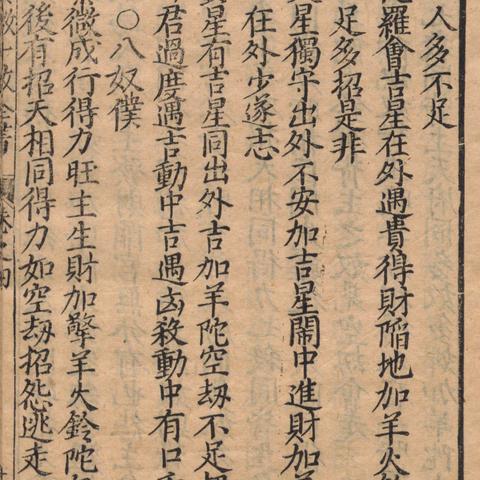 人多不足
羅會吉星在外遇貴得財陷地加羊火
足多招是非
星獨守出外不安加吉星鬧中進財加
在外少遂志
星有吉星同出外吉加羊陀空刼不足
君過度遇吉動中吉遇凶殺動中有口
○八奴僕
微成行得力旺主生財加擎羊火鈴陀
後有招天相同得力如空刼招怨逃走
全書 卷之四